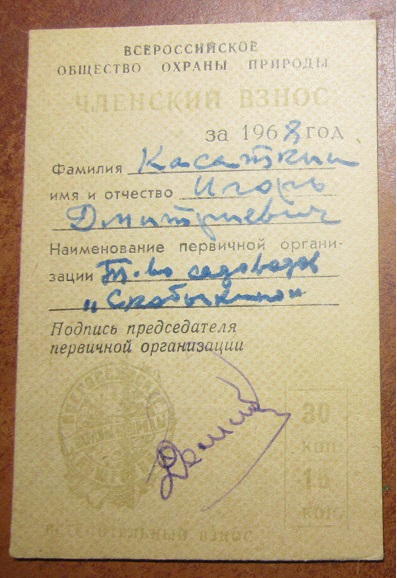 ВСЕРОССИЙСКОЕ
ОБЩЕСТВО ОХРАНЫ ПРИРОДЫ
ЧЛЕНСКИЙ ВЗНОС
за 1968 год
Фамилия Касаткин
имя и отчество Игорь
Дмитриевич
Наименование первичной органи-
зации Т-во садоводов
„Скобыкино"
Подпись председателя
первичной организации
ВСЕРОССИЙСКОЕ
30
КОП
15
КОП
ВЗНОС